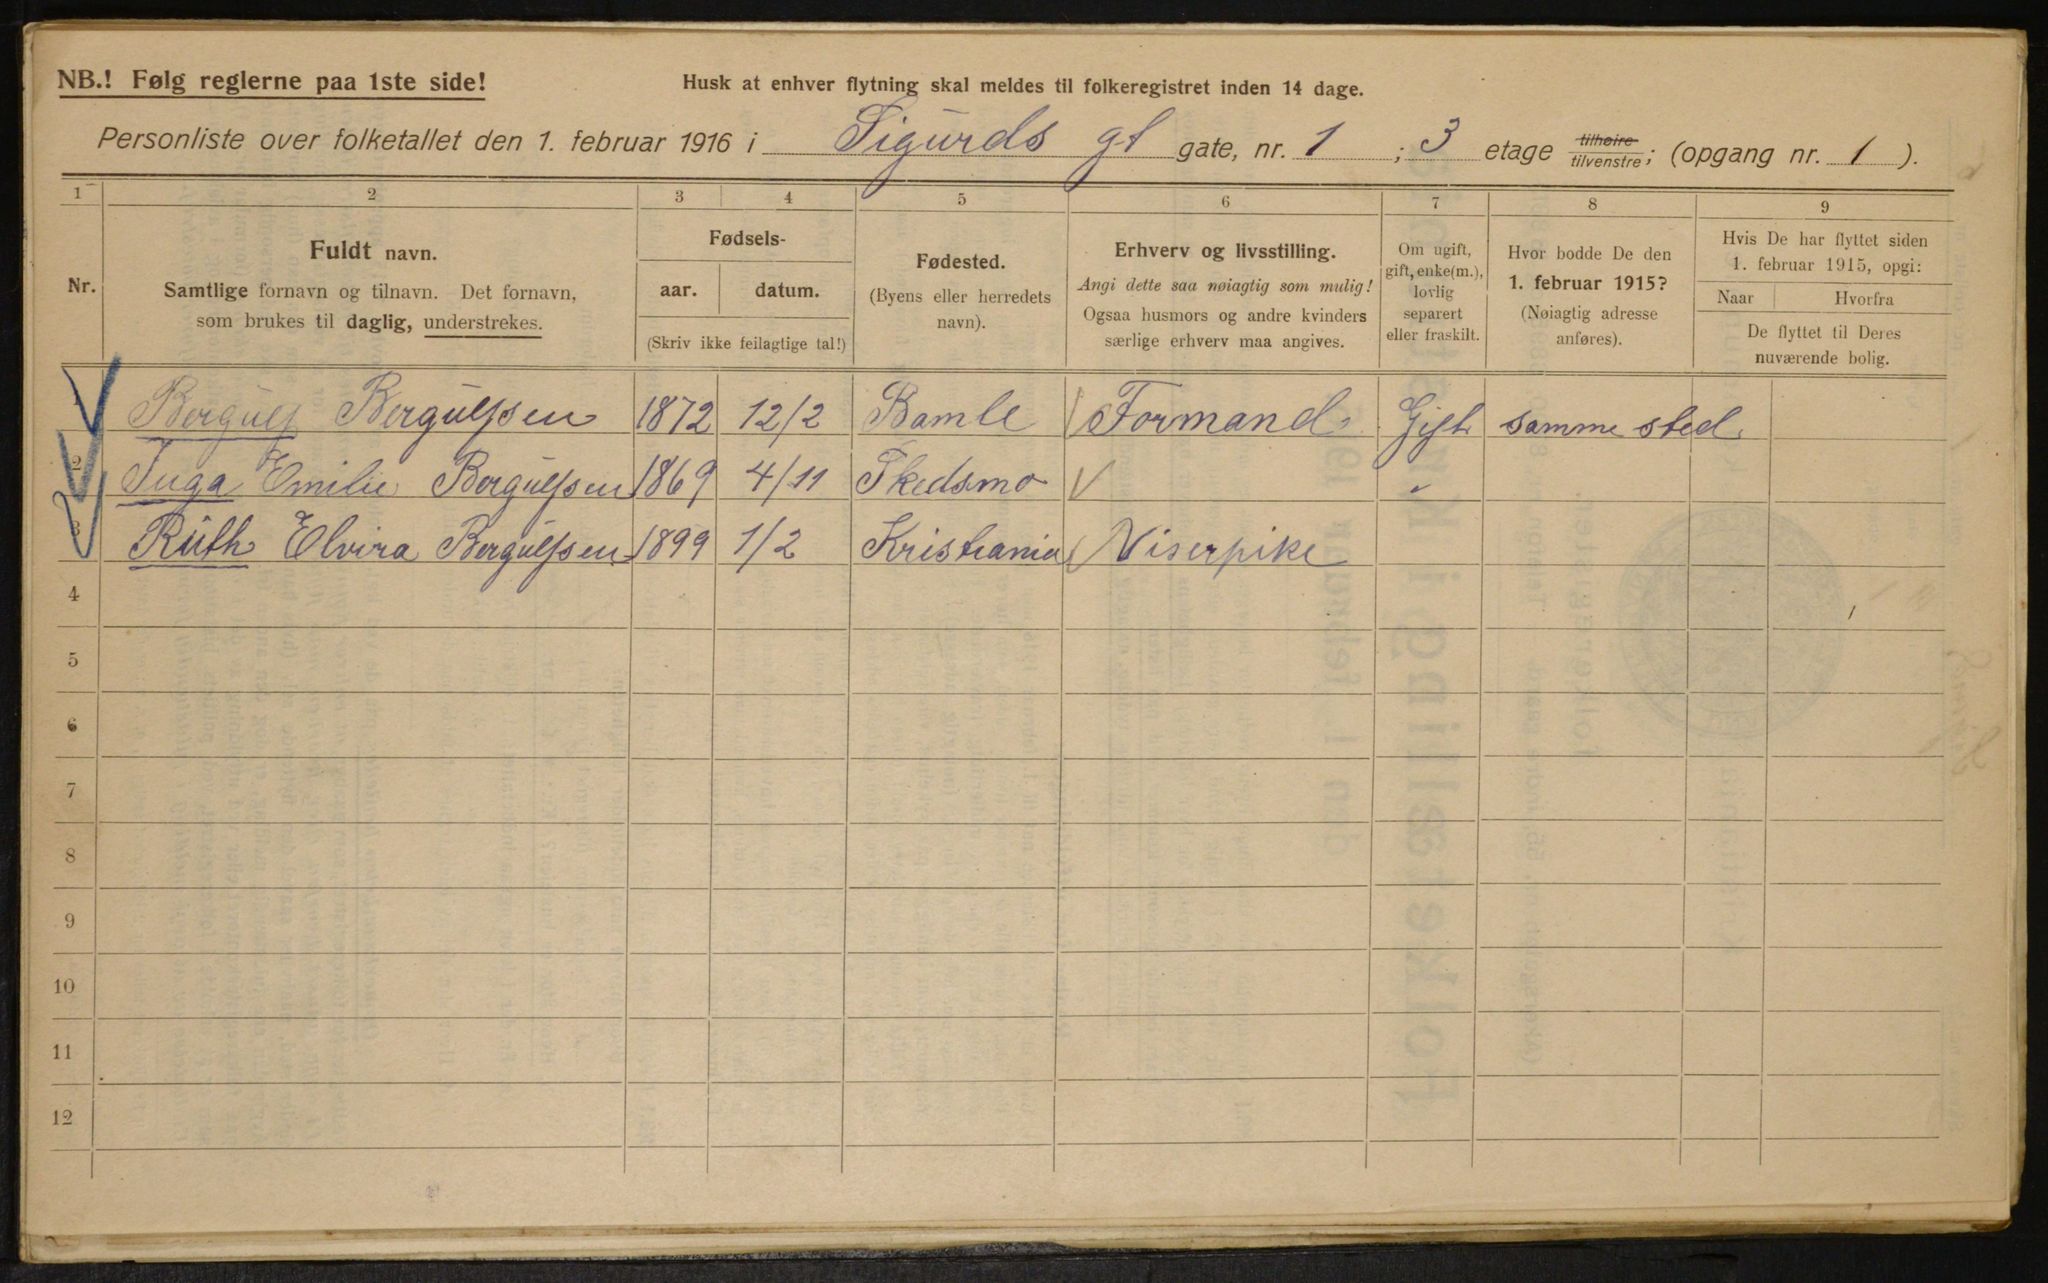 NB.! Følg reglerne paa 1ste side!
Husk at enhver flytning skal meldes til folkeregistret inden 14 dage.
Personliste over folketallet den 1. februar 1916 i Sigurds gt gate, nr. 1 ; 3 etage tilhøire tilvenstre; (opgang nr. 1 ).
1 2 3 4 5 6 7 8 9
Nr.
Fuldt navn.
Samtlige fornavn og tilnavn. Det fornavn,
som brukes til daglig, understrekes.
Fødsels-
aar. datum.
(Skriv ikke feilagtige tal!)
Fødested.
(Byens eller herredets
navn).
Erhverv og livsstilling.
Angi dette saa nøiagtig som mulig!
Ogsaa husmors og andre kvinders
særlige erhverv maa angives.
Om ugift,
gift, enke(m.),
lovlig
separert
eller fraskilt.
Hvor bodde De den
1. februar 1915?
(Nøiagtig adresse
anføres).
Hvis De har flyttet siden
1. februar 1915, opgi:
Naar Hvorfra
De flyttet til Deres
nuværende bolig.
1 Bergulf Bergulfsen 1872 12/2 Bamle Formand Gift samme sted
2 Inga Emilie Bergulfsen 1869 4/11 Skedsmo "
3 Ruth Elvira Bergulfsen 1899 1/2 Kristiania Viserpike
4
5
6
7
8
9
10
11
12